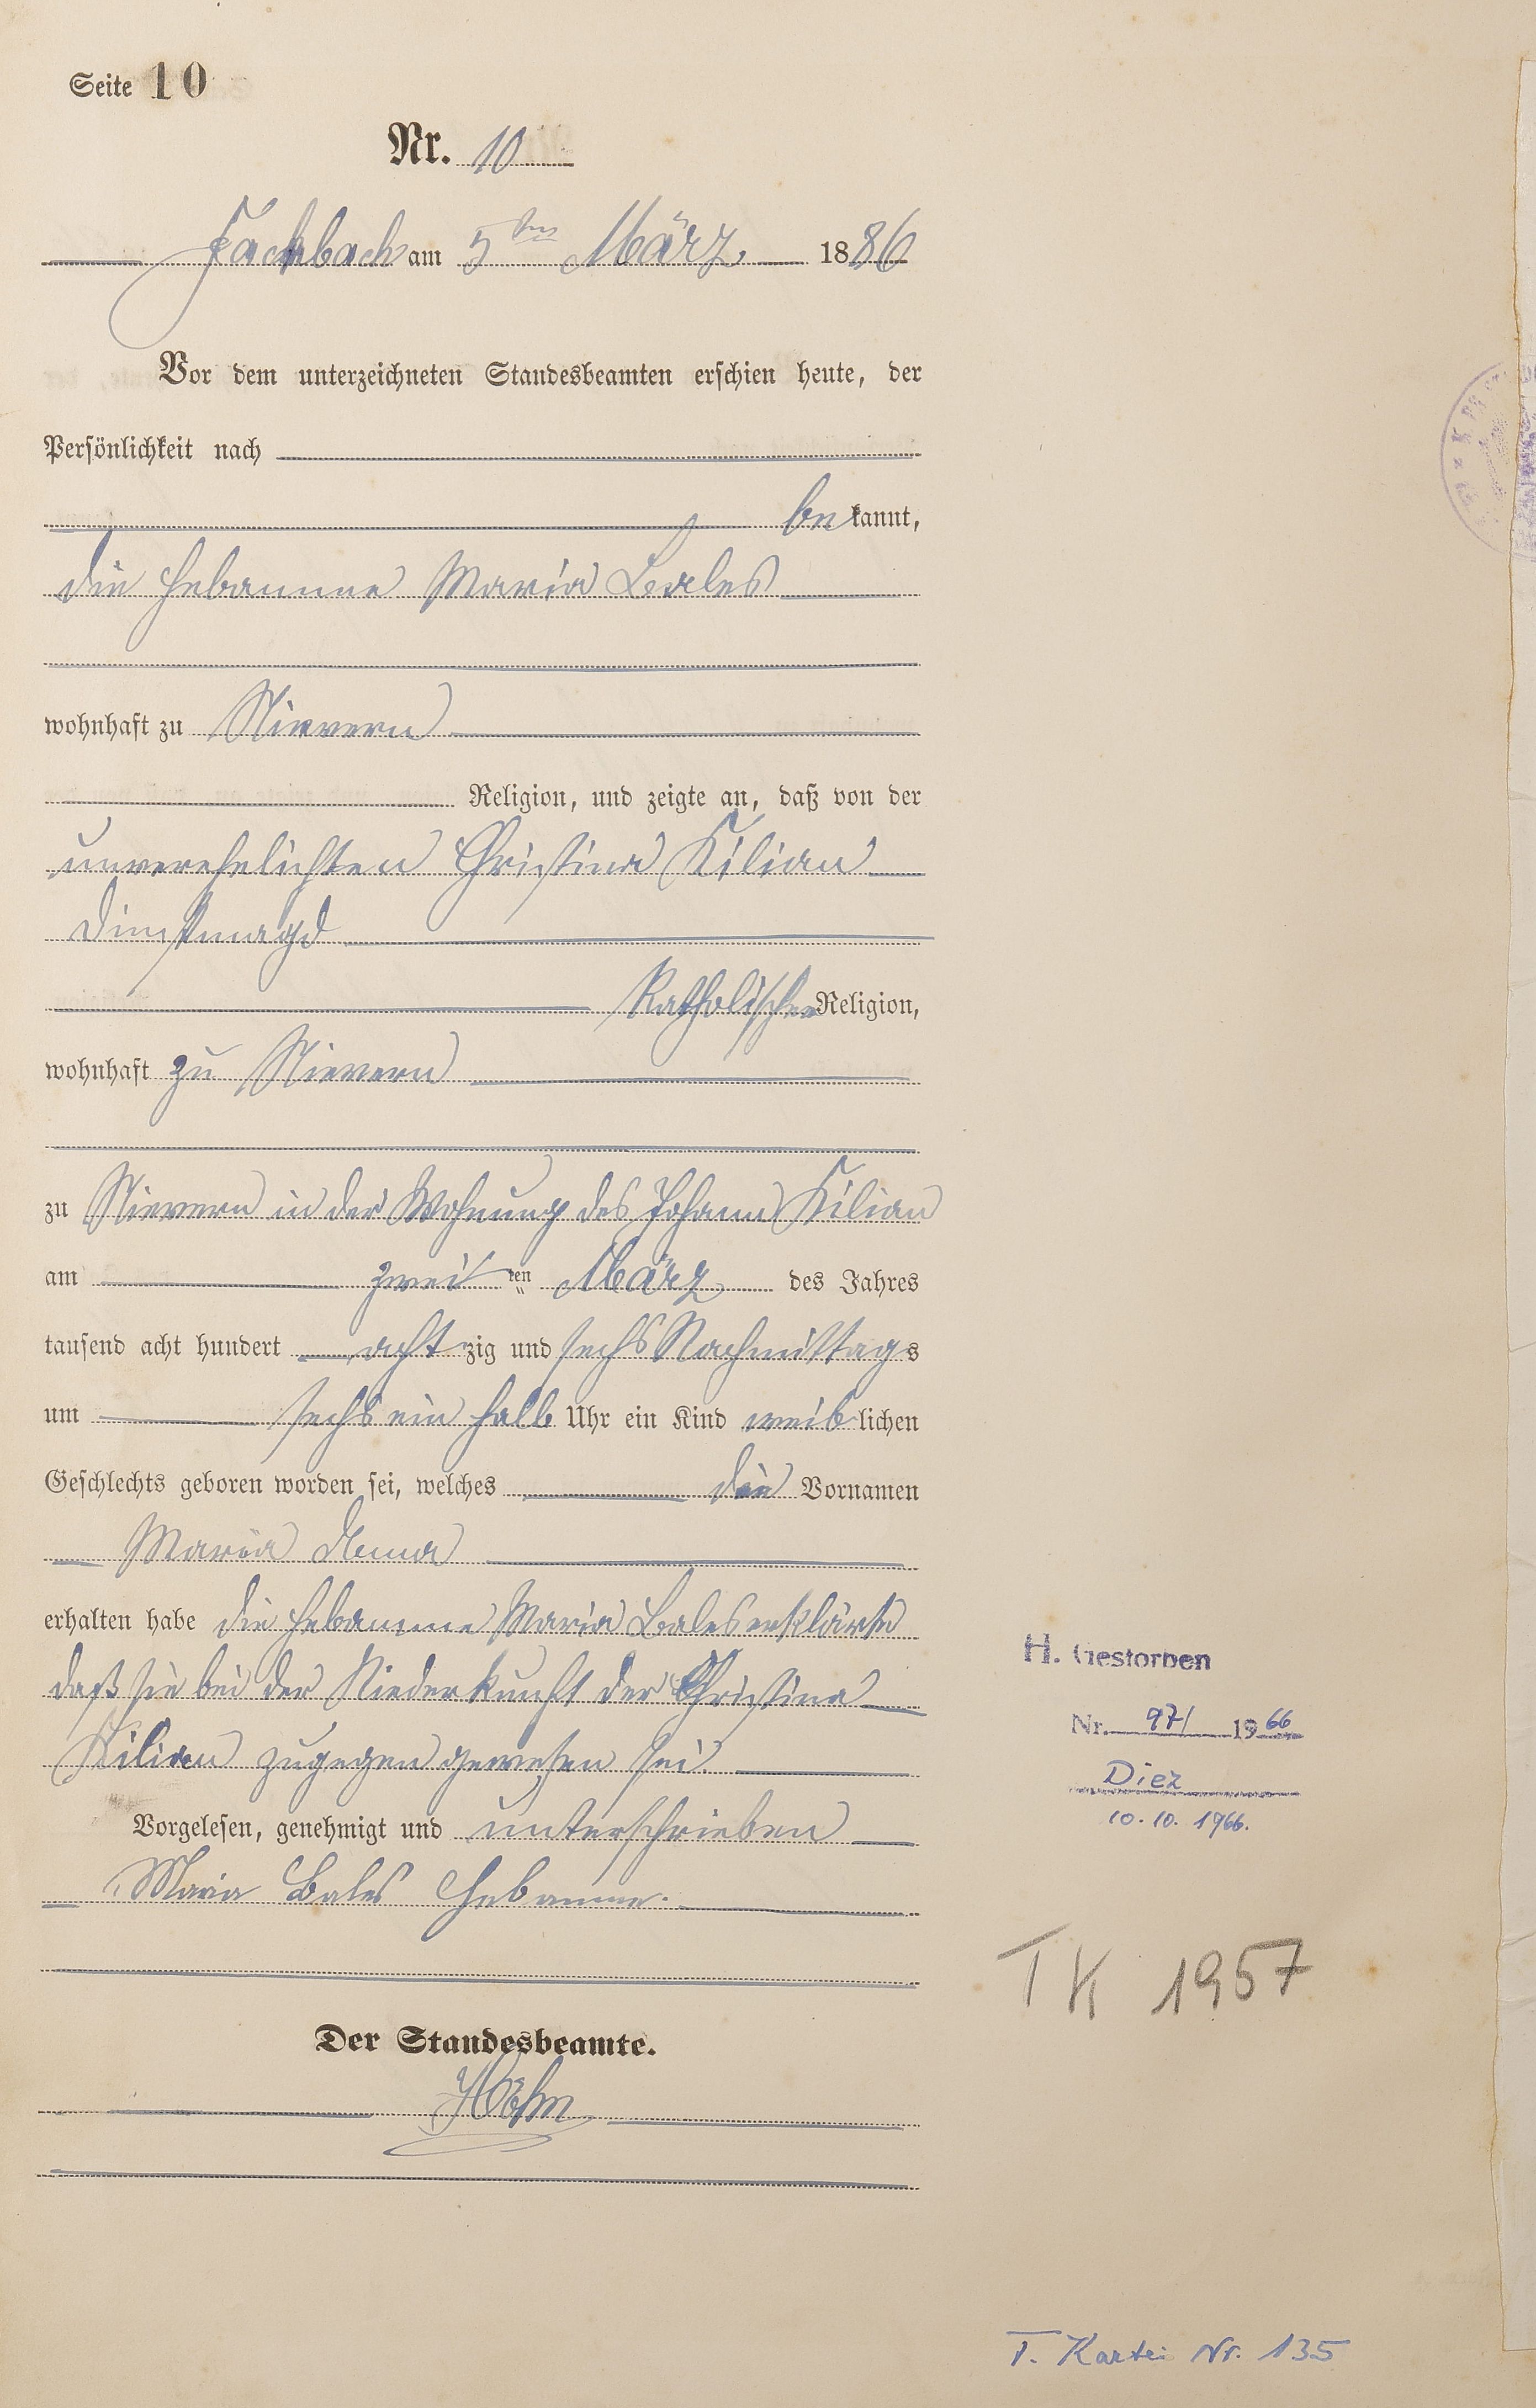 Seite 10
Nr. 10
Fachbach am 5ten März 1886
Vor dem unterzeichneten Standesbeamten erschien heute, der
Persönlichkeit nach
bekannt,
die Hebamme Maria Bales
wohnhaft zu Nievern
Religion, und zeigte an, daß von der
unverehelichten Christina Kilian
Dienstmagd
Katholischer Religion,
wohnhaft zu Nievern
zu Nievern in der Wohnung des Johann Kilian
am zweiten März des Jahres
tausend acht hundert achtzig und sechs Nachmittags
um sechs ein halb Uhr ein Kind weiblichen
Geschlechts geboren worden sei, welches die Vornamen
Maria Anna
erhalten habe die Hebamme Maria Bales erklärte
daß sie bei der Niederkunft der Christina
Kilian zugegen gewesen sei.
Vorgelesen, genehmigt und unterschrieben
Maria Bales Hebamme.
Der Standesbeamte.
H. Gestorben
Nr. 971 1966
Diez
10.10.1966.
TK 1957
T. Kartei Nr. 135